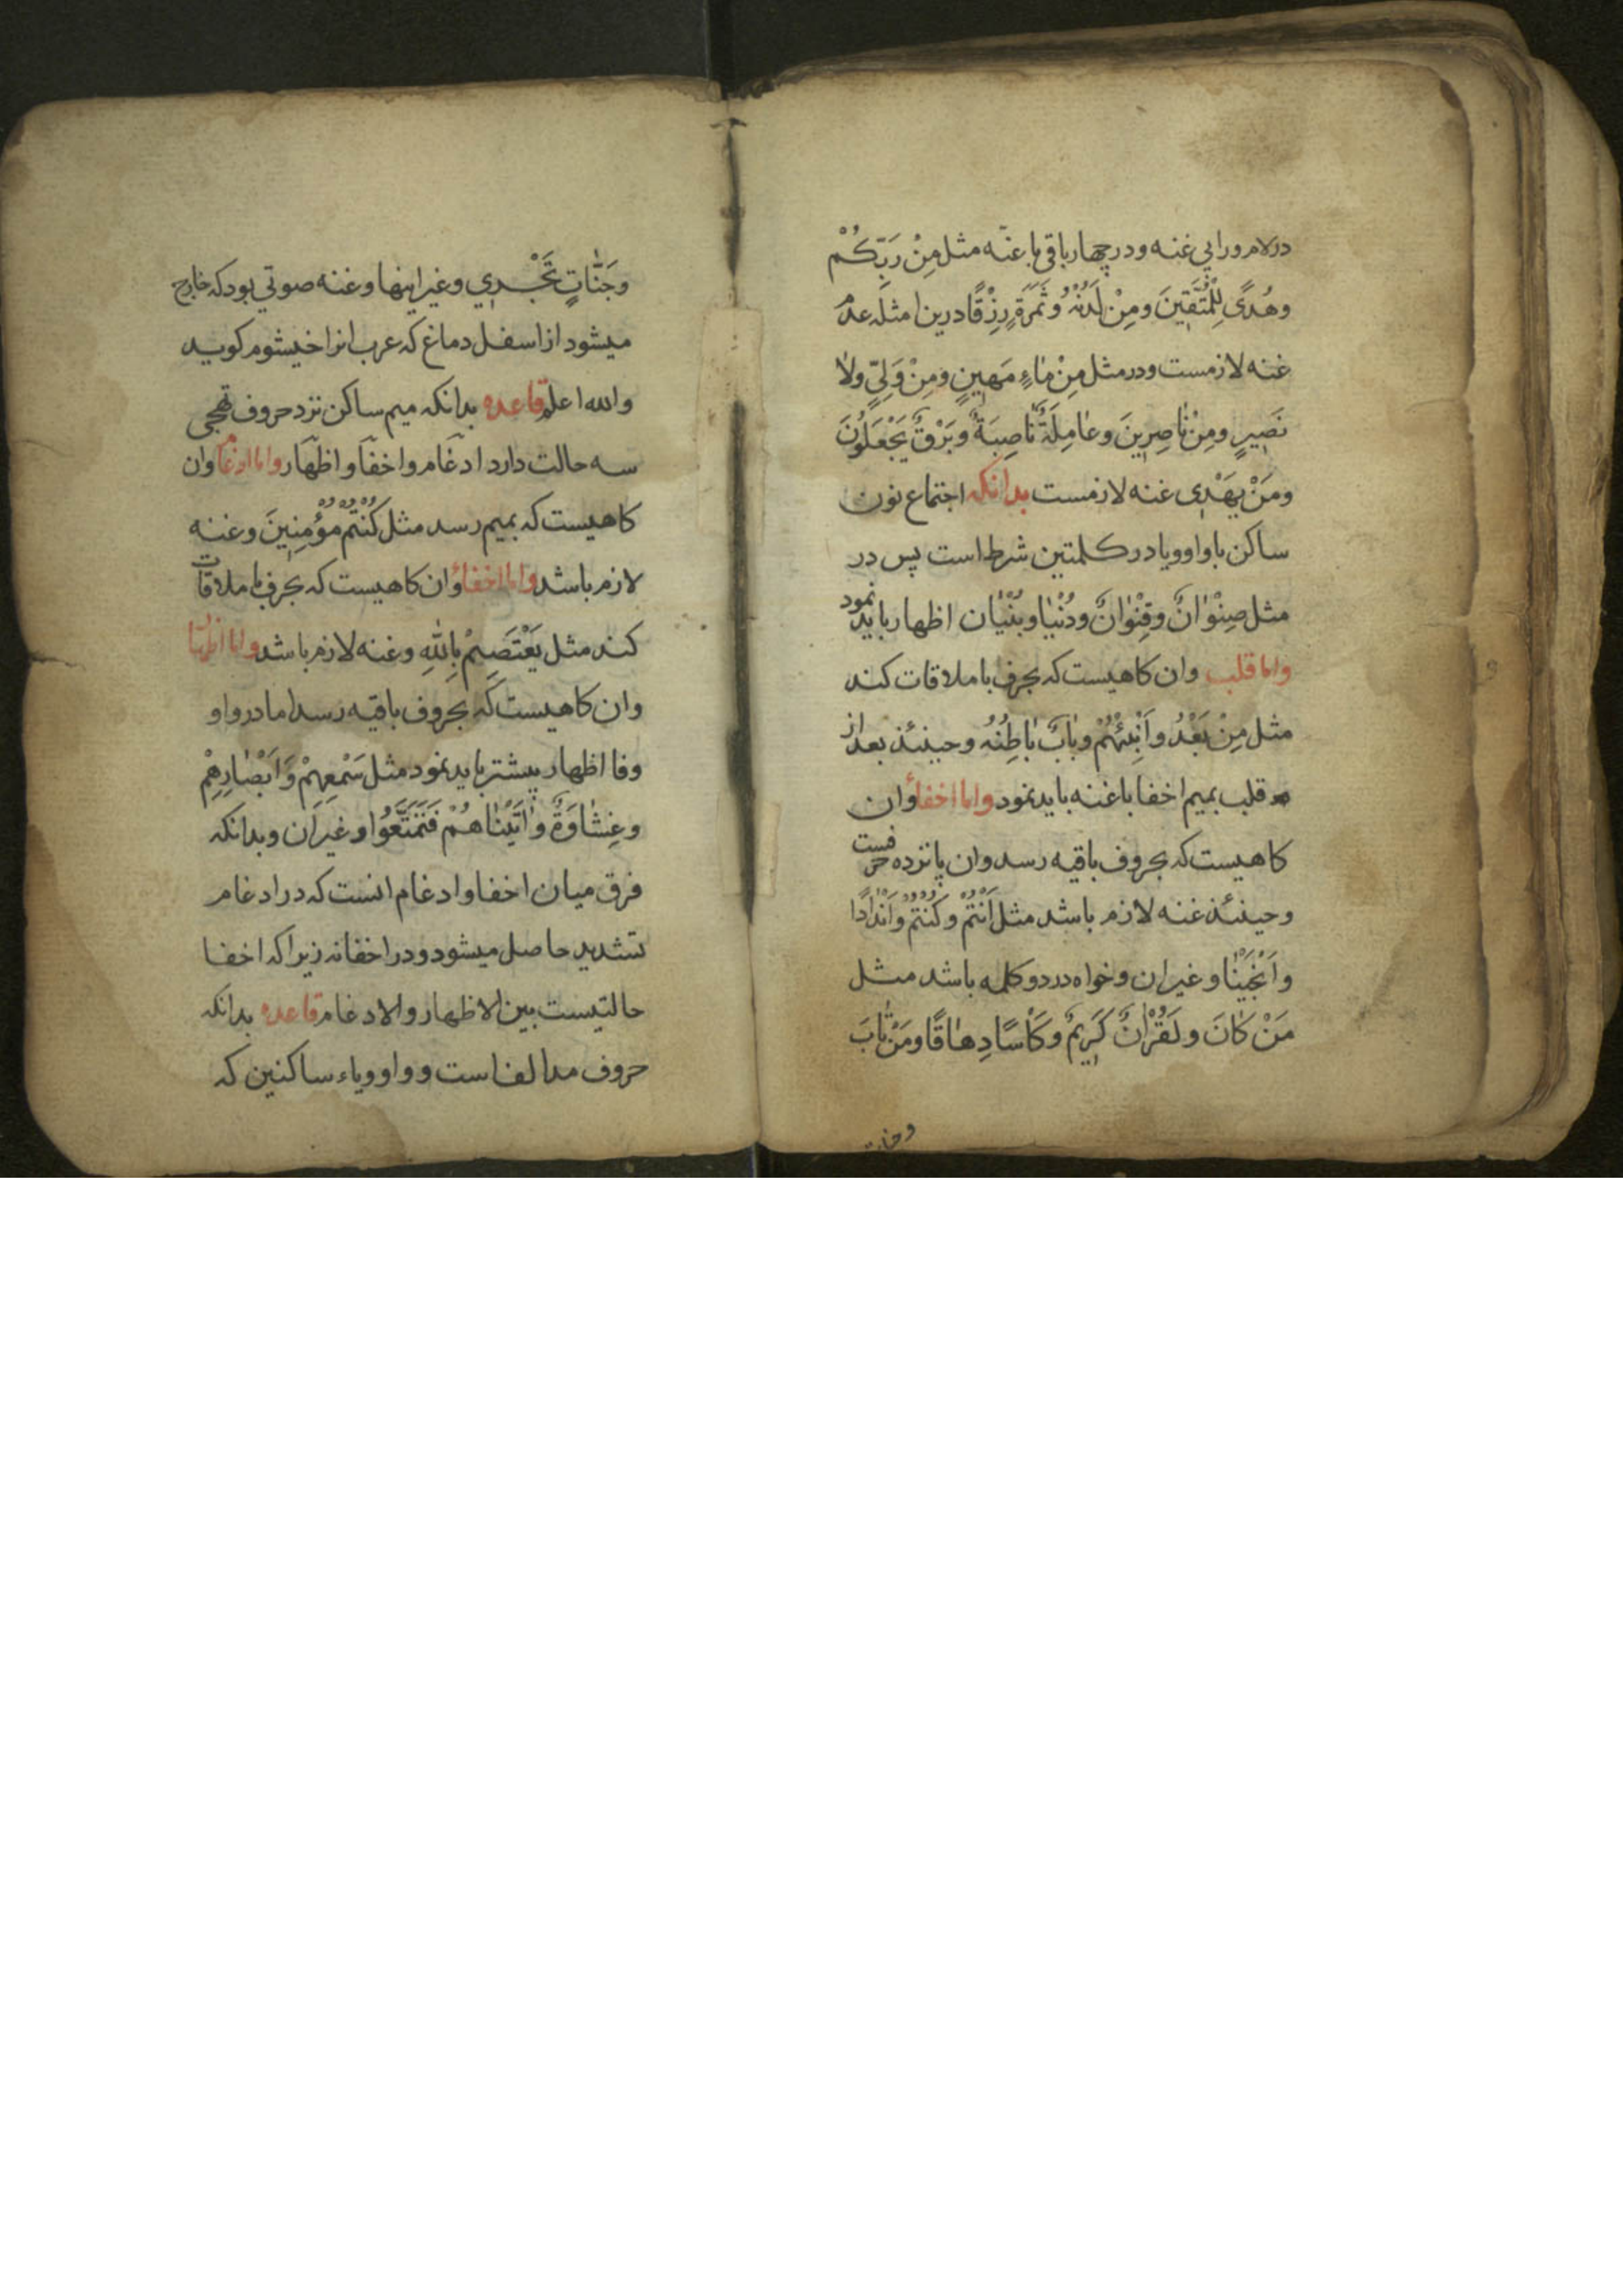 در لام و را بی غنه و در چهار باقی با غنّه مثل مِنْ رَبِّكُمْ
وهُدًى لِلْمُتَّقِينَ ومِنْ لَدُنْهُ وثَمَرَةٍ رِزْقًا درین امثله عدم
غنه لازمست ودر مثل مِنْ مٰاءٍ مَهِينٍ ومِنْ وَلِيٍّ ولاٰ
نَصِيرٍ ومِنْ نٰاصِرِينَ وعٰامِلَةٌ نٰاصِبَةٌ وبَرْقٌ يَجْعَلُونَ
ومَنْ يَهْدِي غنه لازمست بدانکه اجتماع نون
ساکن با واو و یا در کلمتین شرط است پس در
مثل صِنْوٰانٌ وقِنْوٰانٌ ودُنْيٰا وبُنْيٰان اظهار باید نمود
واما قلب وان کاهیست که بحرف با ملاقات کند
مثل مِنْ بَعْدُ واَنْبِئْهُمْ وبٰابٌ بٰاطِنُهُ وحینئذ بعد از
قلب بمیم اخفا با غنه باید نمود واما اخفا وان
کاهیست که بحروف باقیه رسد وان پانزده حرفست
وحینئذ غنه لازم باشد مثل اَنْتُمْ وكُنْتُمْ واَنْدٰادًا
واَنْجَيْنٰا وغیر ان وخواه در دو کلمه باشد مثل
مَنْ كٰانَ ولَقُرْاٰنٌ كَرِيمٌ وكَاْسًا دِهٰاقًا ومَنْ تٰابَ
وجنات
وجَنّٰاتٍ تَجْرِي وغیر اینها وغنه صوتی بود که خارج
میشود از اسفل دماغ که عرب انرا خیشوم کویند
والله اعلم قاعده بدانکه میم ساکن نزد حروف تهجی
سه حالت دارد ادغام واخفا واظهار واما ادغام وان
کاهیست که بمیم رسد مثل كُنْتُمْ مُؤْمِنِينَ وغنه
لازم باشد واما اخفا وان کاهیست که بحرف با ملاقات
کند مثل يَعْتَصِمْ بِاللّٰهِ وغنه لازم باشد واما اظهار
وان کاهیست که بحروف باقیه رسد اما در واو
وفا اظهار بیشتر باید نمود مثل سَمْعِهِمْ وَاَبْصٰارِهِمْ
وغِشٰاوَةٌ واٰتَيْنٰاهُمْ فَتَمَتَّعُوا وغیر ان وبدانکه
فرق میان اخفا وادغام انست که در ادغام
تشدید حاصل میشود ودر اخفا نه زیرا که اخفا
حالتیست بین الاظهار والادغام قاعده بدانکه
حروف مد الفاست وواو ویاء ساکنین که